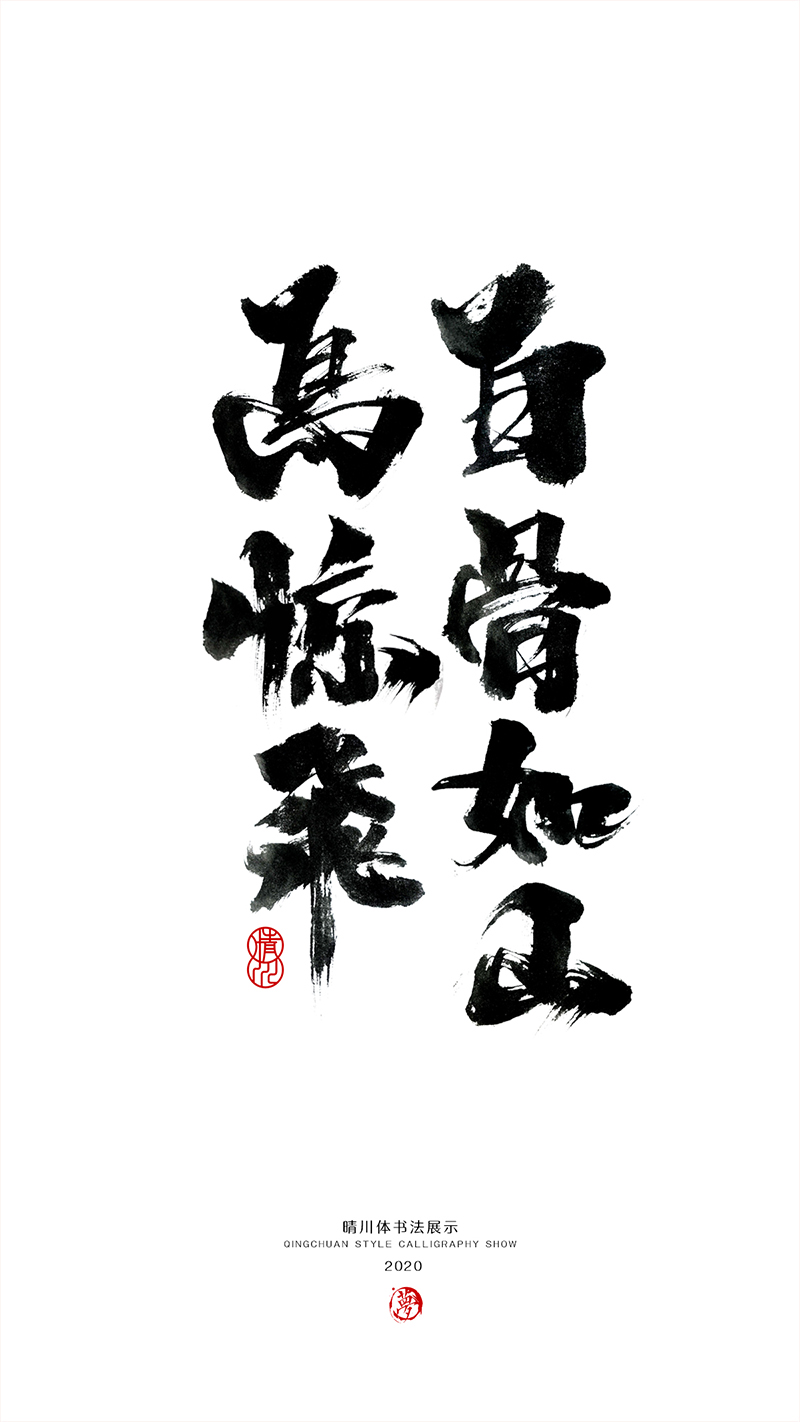 白骨如山
鳥惊飛
晴川
晴川体书法展示
QINGCHUAN STYLE CALLIGRAPHY SHOW
2020
夢